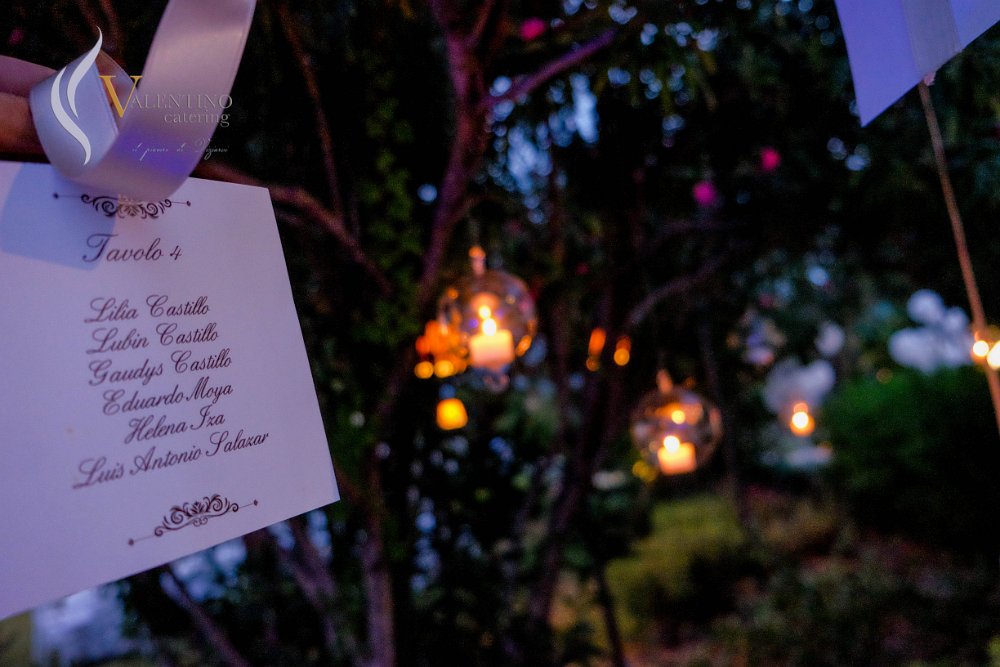 VALENTINO
catering
il piacere di
Tavolo 4
Lilia Castillo
Lubin Castillo
Gaudys Castillo
Eduardo Moya
Helena Iza
Luis Antonio Salazar